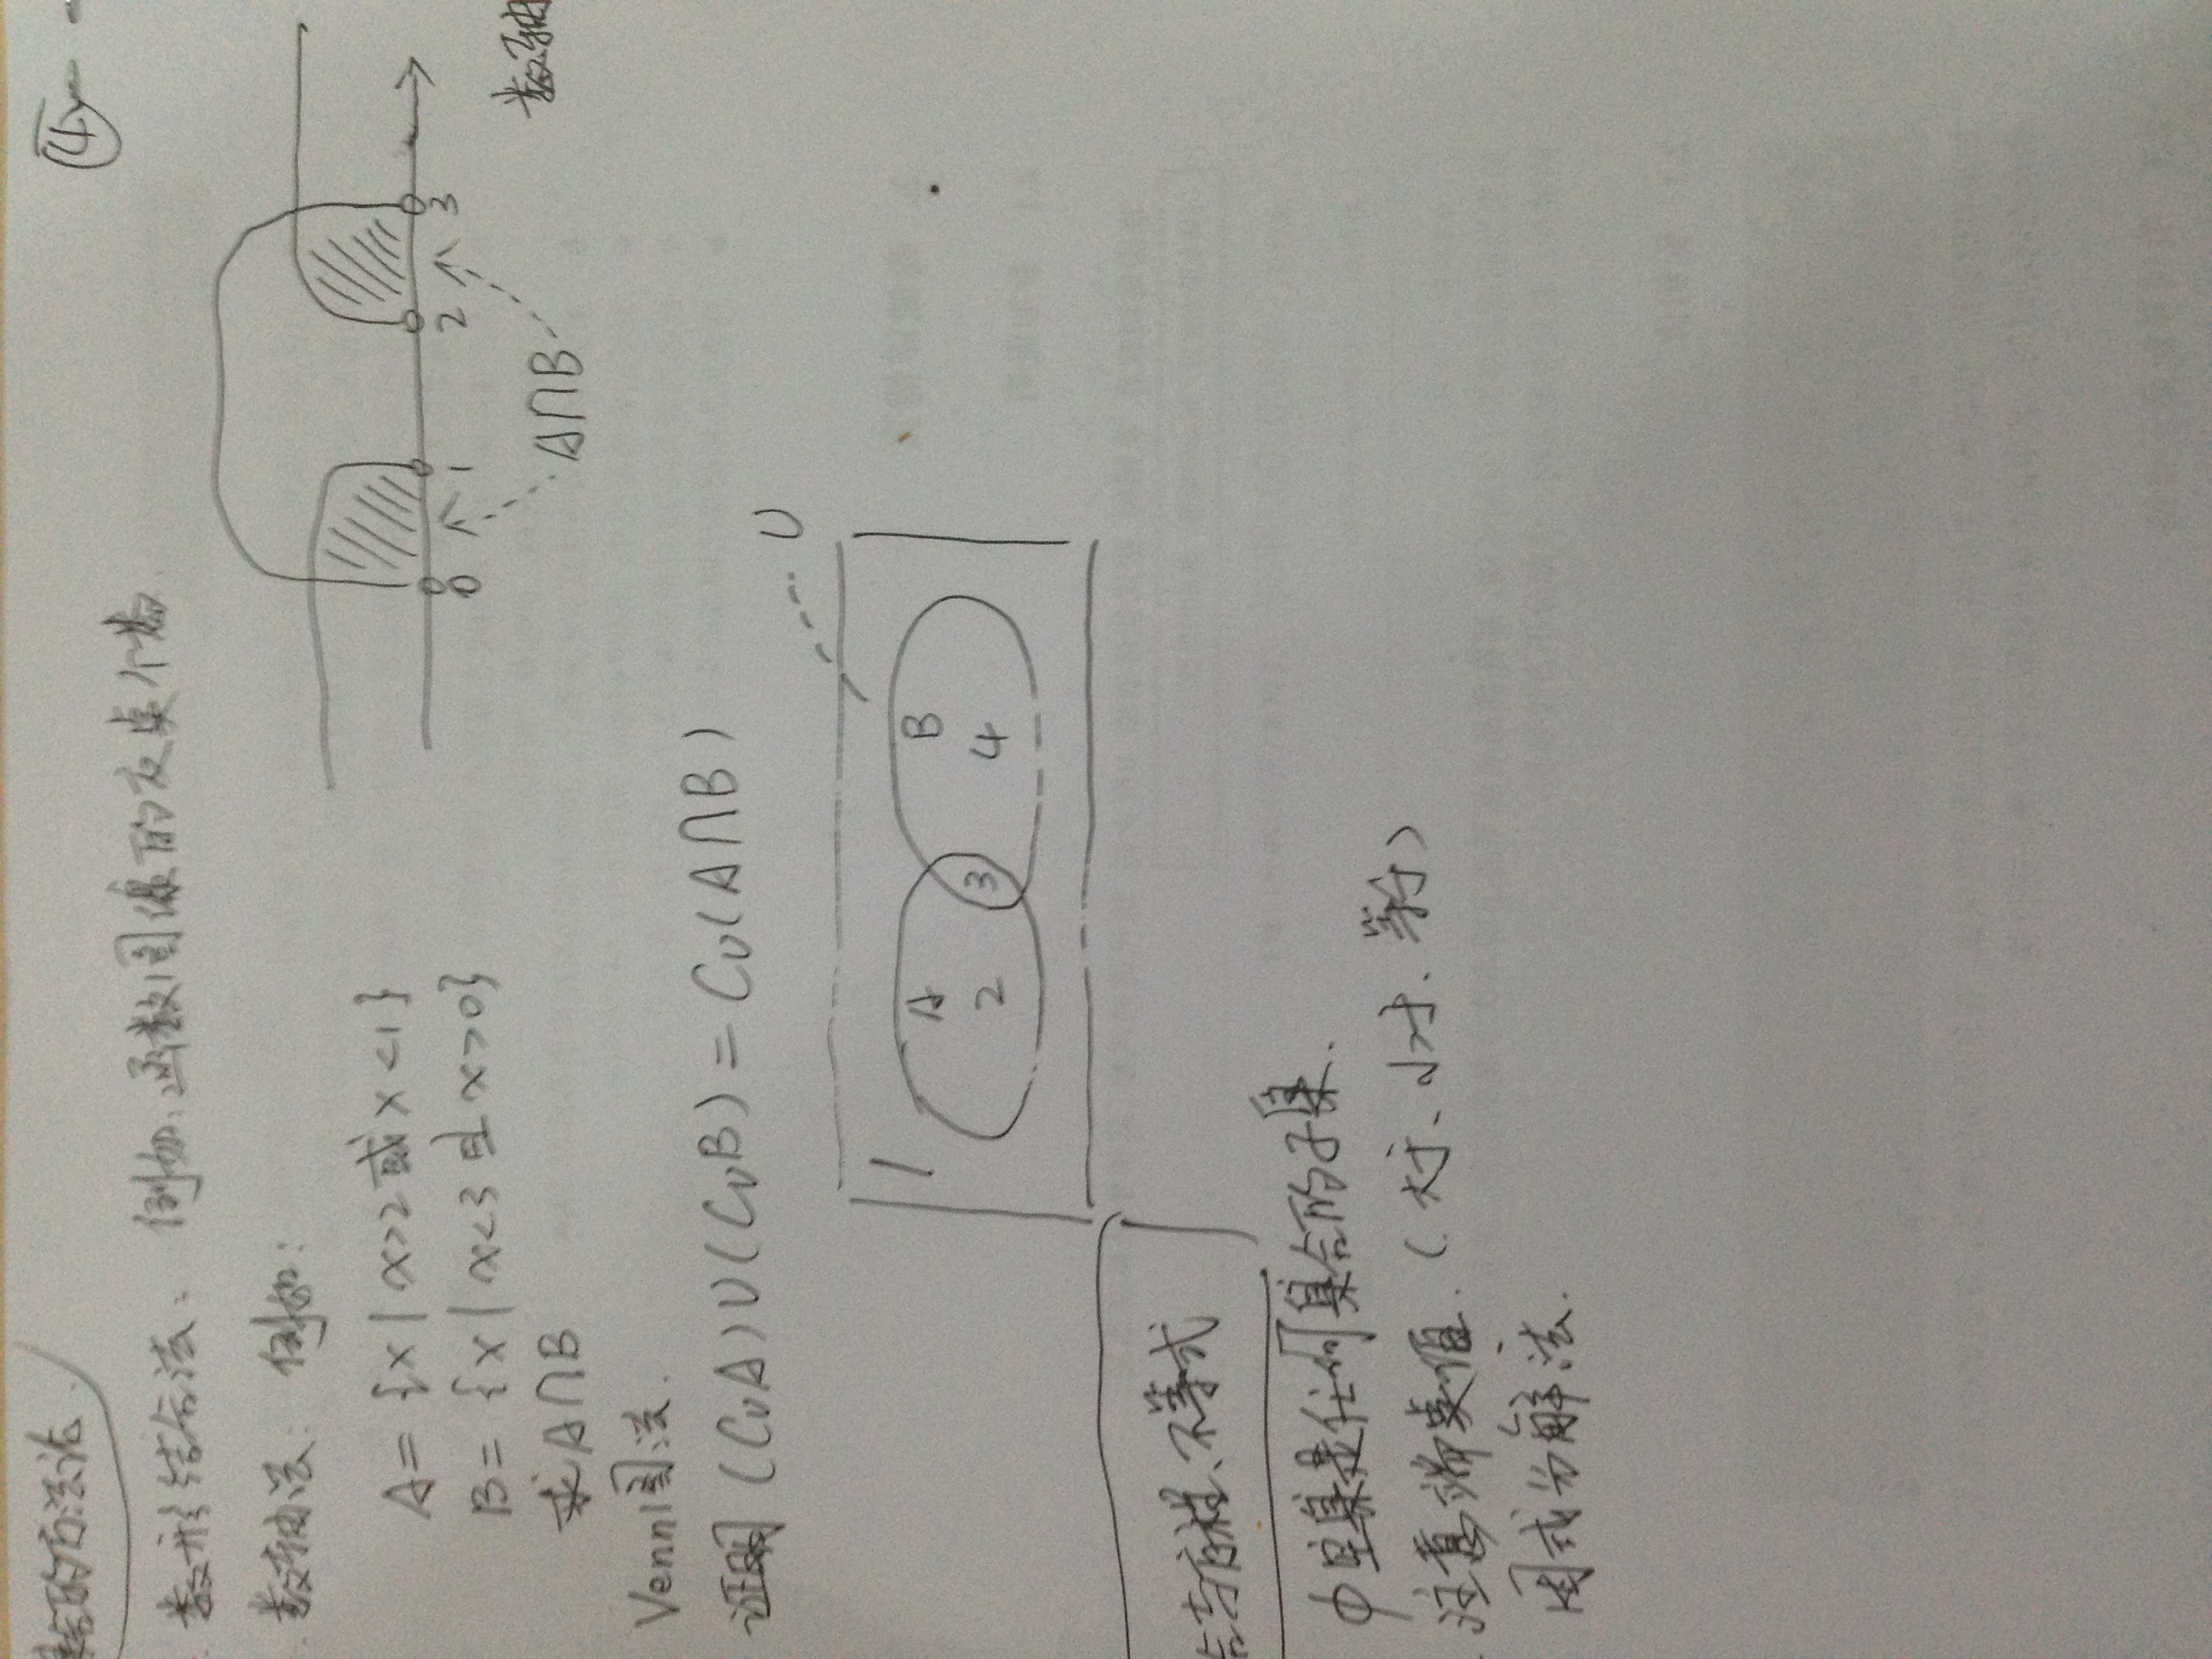 集合的方法论
④
数形结合法: 例如:函数图像的交点个数
数轴法: 例如:
A={x|x>2或x<1}
B={x|x<3且x>0}
求A∩B
0 1 2 3
A∩B
数轴
Venn图法.
证明 (CuA)∪(CuB)=Cu(A∩B)
U
1
A B
2 3 4
合与方程、不等式
φ空集是任何集合的子集.
注意端点值.(大于、小于、等于)
因式分解法.